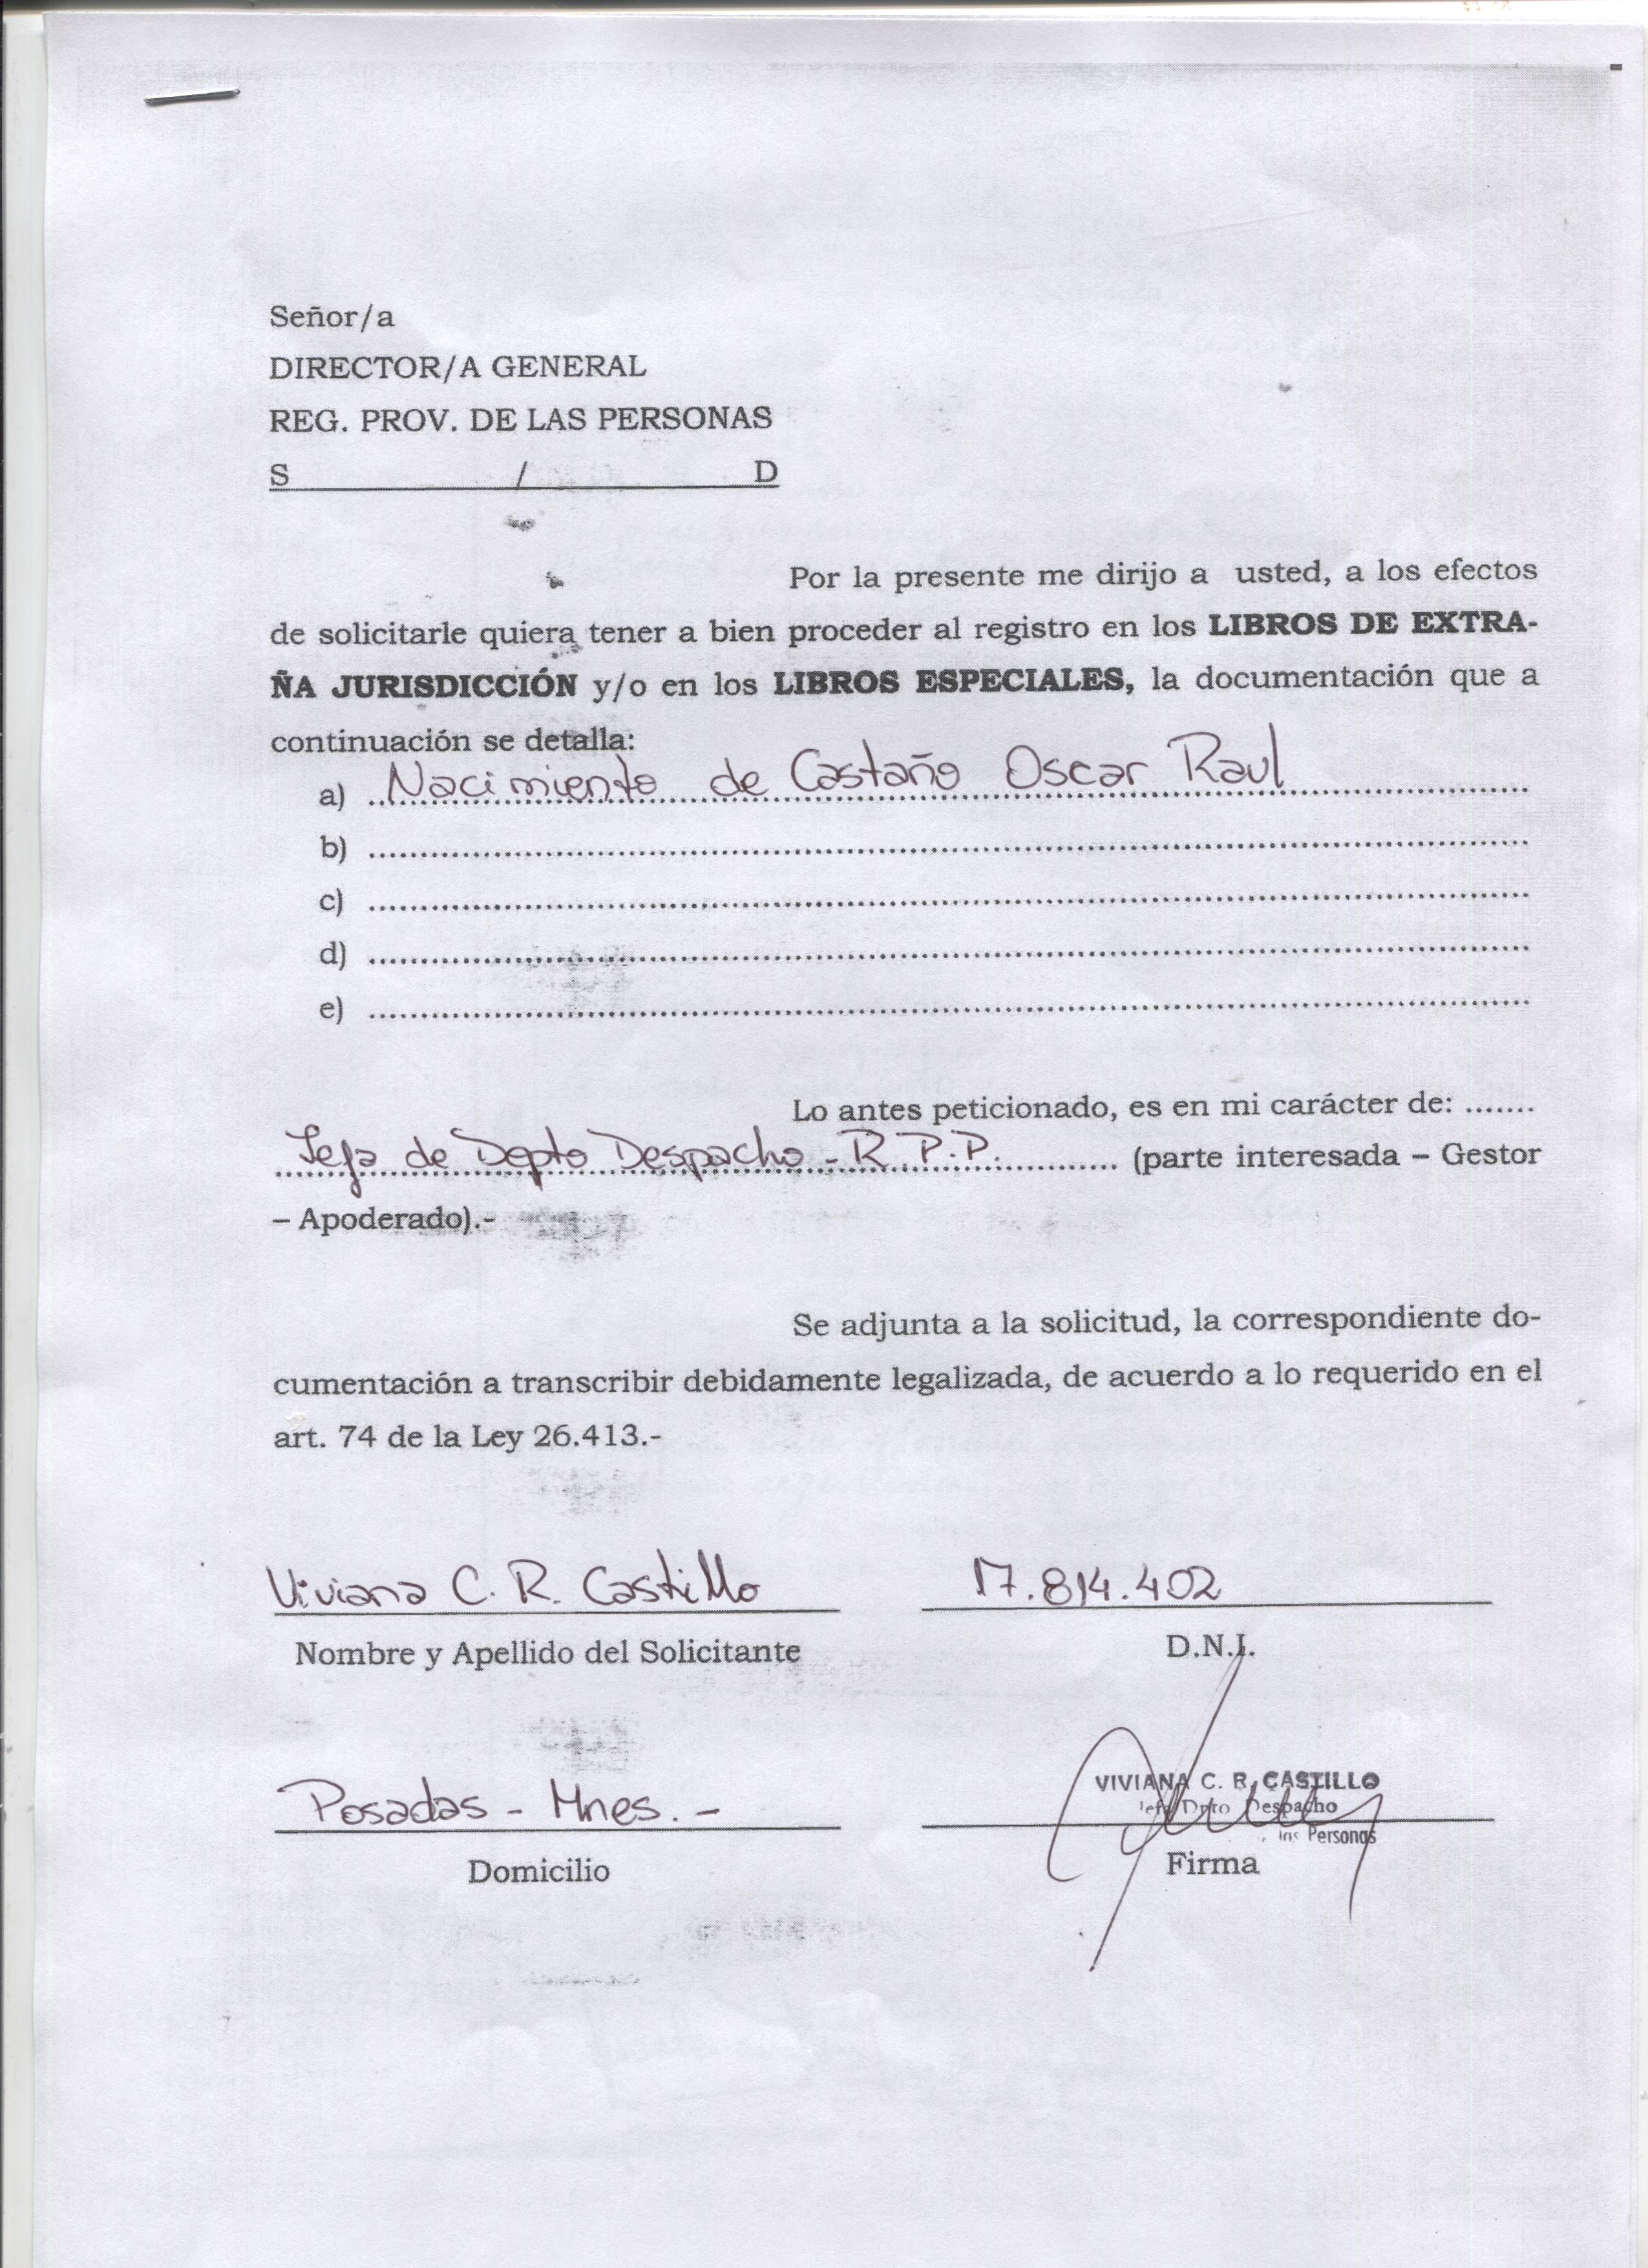 Señor/a
DIRECTOR/A GENERAL
REG. PROV. DE LAS PERSONAS
S / D
Por la presente me dirijo a usted, a los efectos
de solicitarle quiera tener a bien proceder al registro en los LIBROS DE EXTRA-
ÑA JURISDICCIÓN y/o en los LIBROS ESPECIALES, la documentación que a
continuación se detalla:
a) Nacimiento de Castaño Oscar Raul
b) ........
c) ........
d) ........
e) ........
Lo antes peticionado, es en mi carácter de: .......
Jefa de Depto Despacho - R.P.P. ........ (parte interesada – Gestor
– Apoderado).-
Se adjunta a la solicitud, la correspondiente do-
cumentación a transcribir debidamente legalizada, de acuerdo a lo requerido en el
art. 74 de la Ley 26.413.-
Viviana C. R. Castillo 17.814.402
Nombre y Apellido del Solicitante D.N.I.
VIVIANA C. R. CASTILLO
Jefa Dpto Despacho
las Personas
Posadas - Mnes. -
Domicilio Firma